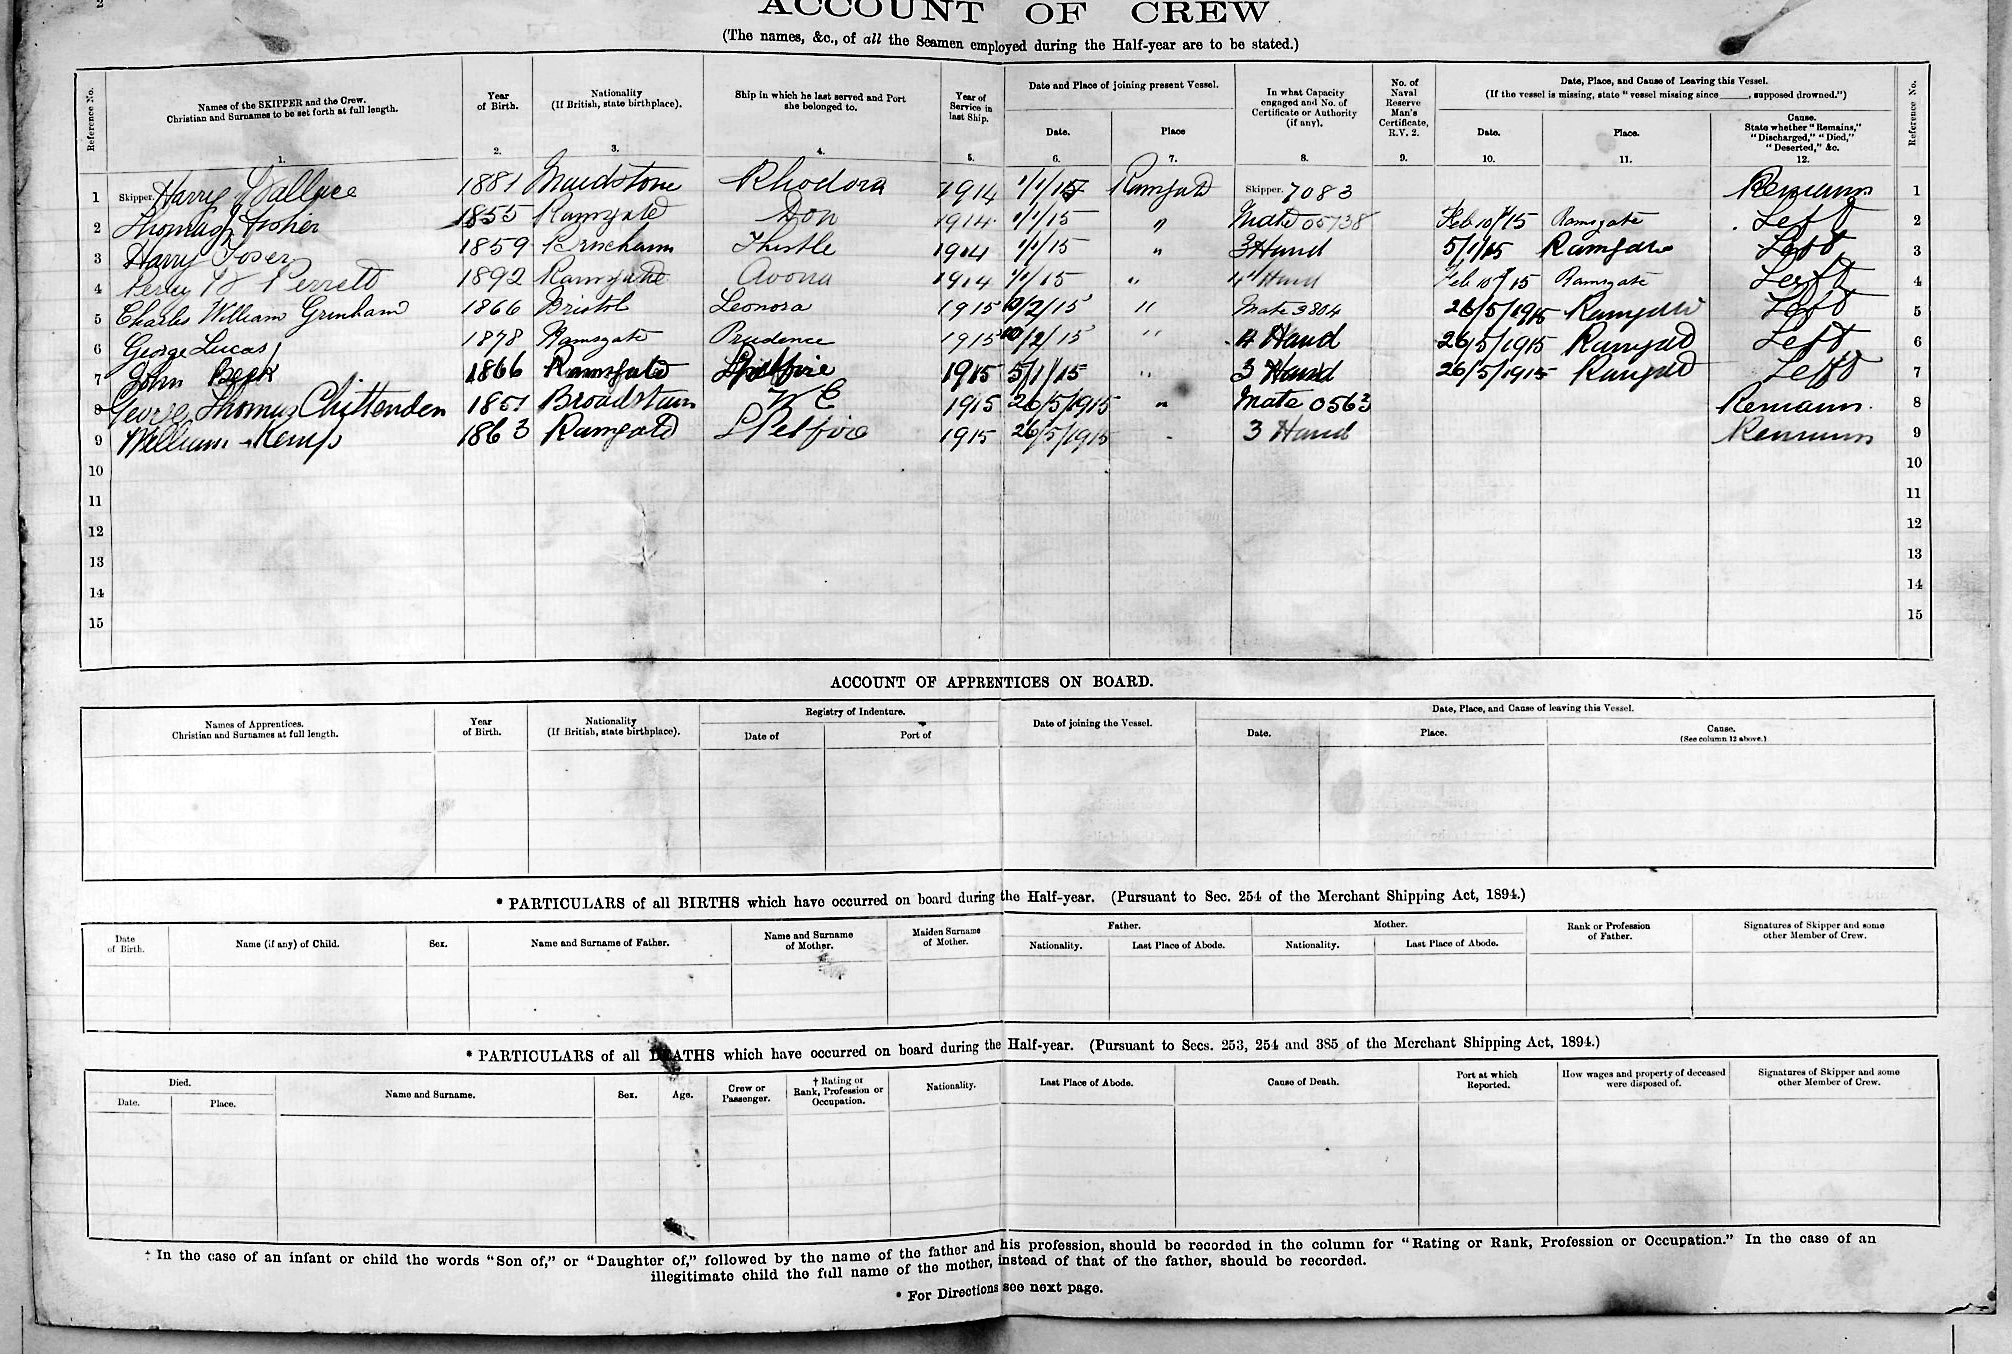 2
ACCOUNT OF CREW
(The names, &c., of all the Seamen employed during the Half-year are to be stated.)
Reference No. Names of the SKIPPER and the Crew. Christian and Surnames to be set forth at full length. Year of Birth. Nationality (If British, state birthplace). Ship in which he last served and Port she belonged to. Year of Service in last Ship. Date and Place of joining present Vessel. Date. Place In what Capacity engaged and No. of Certificate or Authority (if any). No. of Naval Reserve Man's Certificate, R.V. 2. Date, Place, and Cause of Leaving this Vessel. (If the vessel is missing, state "vessel missing since____, supposed drowned.") Date. Place. Cause. State whether "Remains," "Discharged," "Died," "Deserted," &c. Reference No.
1. 2. 3. 4. 5. 6. 7. 8. 9. 10. 11. 12.
1 Skipper. Harry Wallace 1881 Maidstone Rhodora 1914 1/1/15 Ramsgate Skipper. 7083 Remains 1
2 Thomas Fisher 1855 Ramsgate Don 1914 1/1/15 " Mate 05738 Feb 10th/15 Ramsgate Left 2
3 Harry Toser 1859 Brixham Thistle 1914 1/1/15 " 3 Hand 5/1/15 Ramsgate Left 3
4 Percy W Perrett 1892 Ramsgate Avona 1914 1/1/15 " 4th Hand Feb 10th/15 Ramsgate Left 4
5 Charles William Grinham 1866 Bristol Leonora 1915 10/2/15 " Mate 3804 26/5/1915 Ramsgate Left 5
6 George Lucas 1878 Ramsgate Prudence 1915 10/2/15 " 4 Hand 26/5/1915 Ramsgate Left 6
7 John Beek 1866 Ramsgate Spitfire 1915 5/1/15 " 3 Hand 26/5/1915 Ramsgate Left 7
8 George Thomas Chittenden 1851 Broadstairs W E 1915 26/5/1915 " Mate 0563 Remains. 8
9 William Kemp 1863 Ramsgate SPetfire 1915 26/5/1915 " 3 Hand Remains 9
10 10
11 11
12 12
13 13
14 14
15 15
ACCOUNT OF APPRENTICES ON BOARD.
Names of Apprentices. Christian and Surnames at full length. Year of Birth. Nationality (If British, state birthplace). Registry of Indenture. Date of Port of Date of joining the Vessel. Date, Place, and Cause of leaving this Vessel. Date. Place. Cause. (See column 12 above.)
* PARTICULARS of all BIRTHS which have occurred on board during the Half-year. (Pursuant to Sec. 254 of the Merchant Shipping Act, 1894.)
Date of Birth. Name (if any) of Child. Sex. Name and Surname of Father. Name and Surname of Mother. Maiden Surname of Mother. Father. Nationality. Last Place of Abode. Mother. Nationality. Last Place of Abode. Rank or Profession of Father. Signatures of Skipper and some other Member of Crew.
* PARTICULARS of all DEATHS which have occurred on board during the Half-year. (Pursuant to Secs. 253, 254 and 385 of the Merchant Shipping Act, 1894.)
Died. Date. Place. Name and Surname. Sex. Age. Crew or Passenger. † Rating or Rank, Profession or Occupation. Nationality. Last Place of Abode. Cause of Death. Port at which Reported. How wages and property of deceased were disposed of. Signatures of Skipper and some other Member of Crew.
† In the case of an infant or child the words "Son of," or "Daughter of," followed by the name of the father and his profession, should be recorded in the column for "Rating or Rank, Profession or Occupation." In the case of an
illegitimate child the full name of the mother, instead of that of the father, should be recorded.
* For Directions see next page.